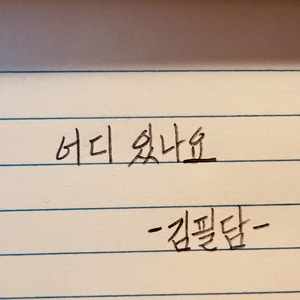 어디 있나요
-김필담-